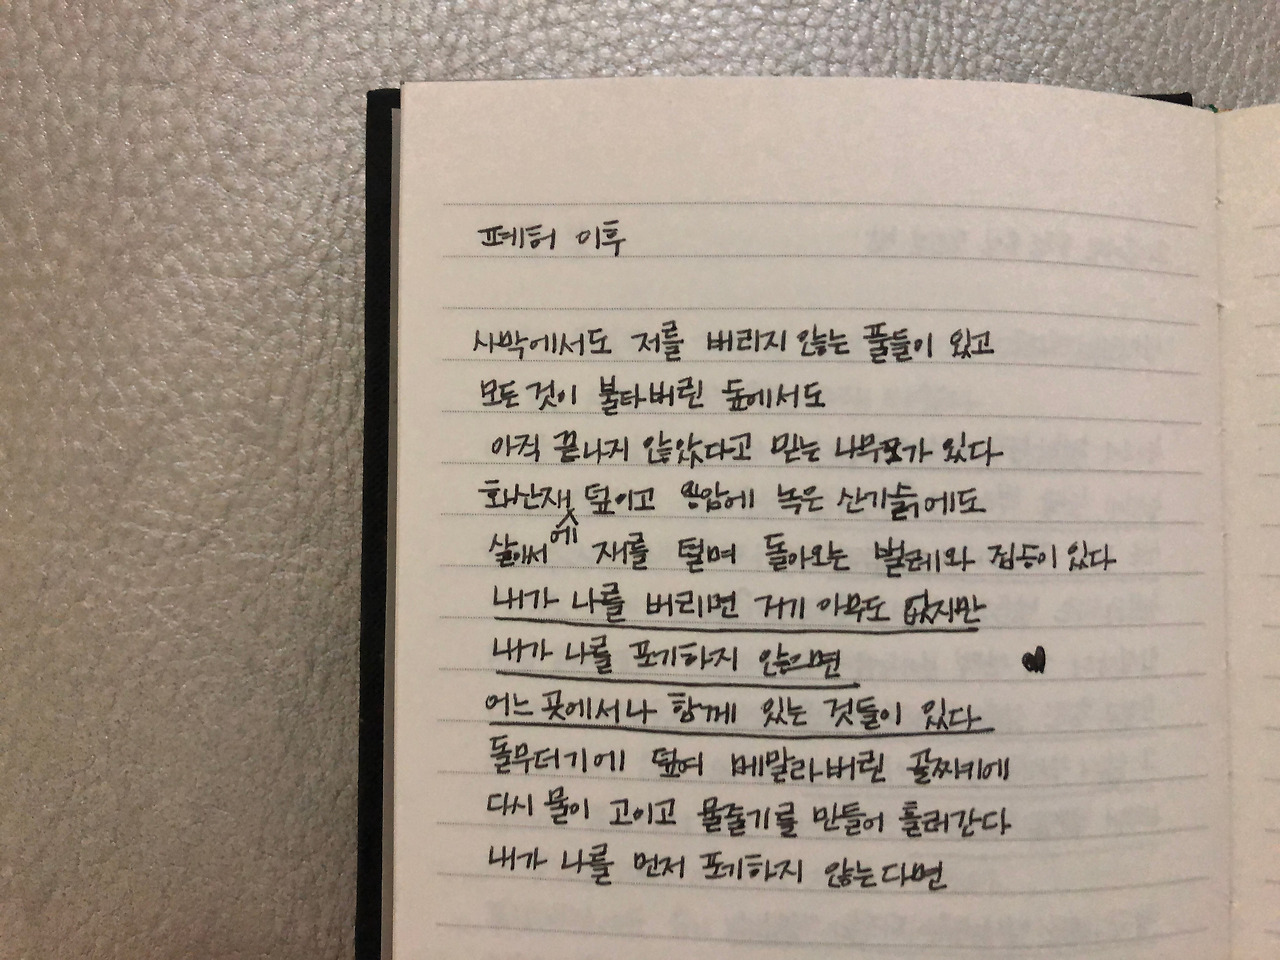 폐허 이후
사막에서도 저를 버리지 않는 풀들이 있고
모든 것이 불타버린 숲에서도
아직 끝나지 않았다고 믿는 나무가 있다
화산재에 덮이고 용암에 녹은 산기슭에도
살아서 재를 털며 돌아오는 벌레와 짐승이 있다
내가 나를 버리면 거기 아무도 없지만
내가 나를 포기하지 않으면
어느 곳에서나 함께 있는 것들이 있다
돌무더기에 덮여 메말라버린 골짜기에
다시 물이 고이고 물줄기를 만들어 흘러간다
내가 나를 먼저 포기하지 않는다면